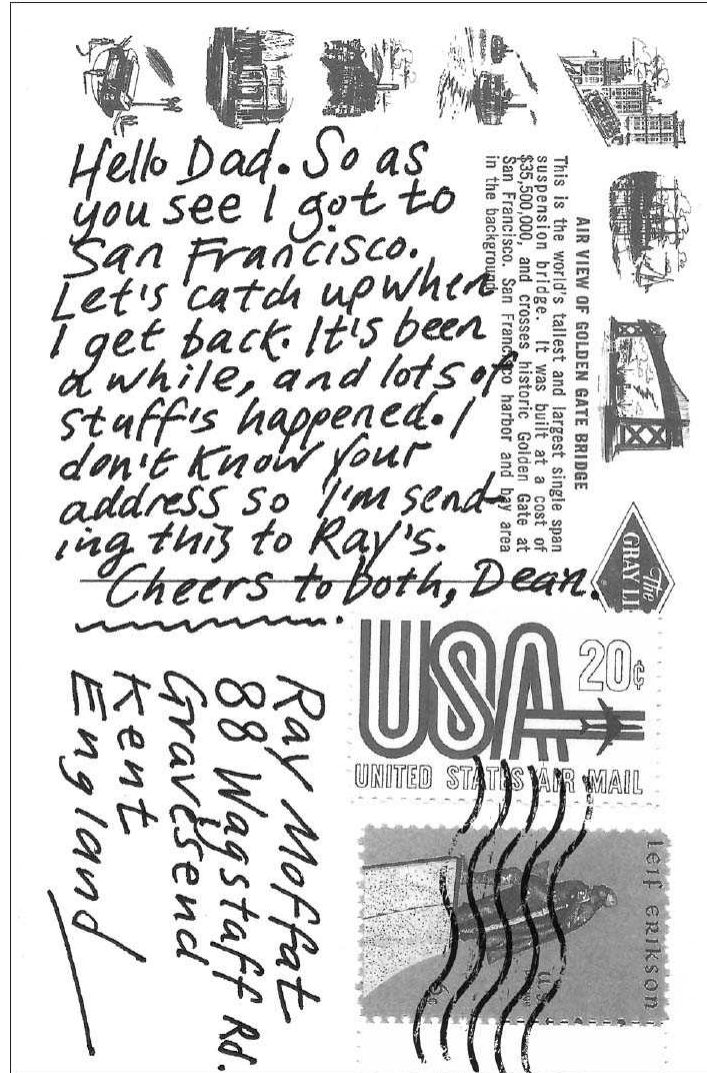 Hello Dad. So as
you see I got to
San Francisco.
Let's catch up when
I get back. It's been
a while, and lots of
stuff's happened. I
don't know your
address so I'm send-
ing this to Ray's.
Cheers to both, Dean.
AIR VIEW OF GOLDEN GATE BRIDGE
This is the world's tallest and largest single span
suspension bridge. It was built at a cost of
$35,500,000, and crosses historic Golden Gate at
San Francisco. San Francisco harbor and bay area
in the background.
The
GRAY LI
USA 20¢
UNITED STATES AIR MAIL
Leif Erikson
U.S.
6¢
Ray Moffat
88 Wagstaff Rd.
Gravesend
Kent
England